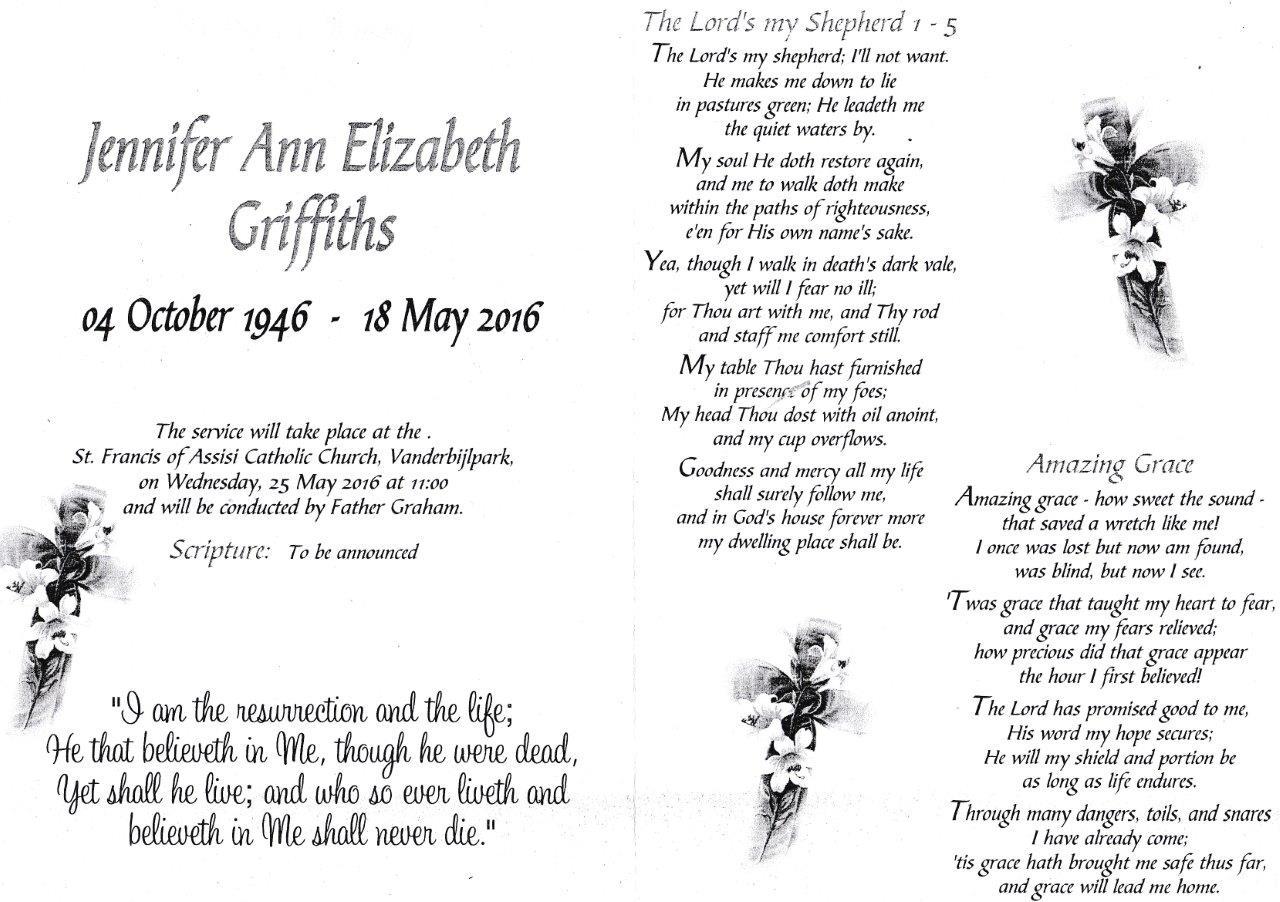 Jennifer Ann Elizabeth
Griffiths
04 October 1946 - 18 May 2016
The service will take place at the .
St. Francis of Assisi Catholic Church, Vanderbijlpark,
on Wednesday, 25 May 2016 at 11:00
and will be conducted by Father Graham.
Scripture: To be announced
"I am the resurrection and the life;
He that believeth in Me, though he were dead,
Yet shall he live; and who so ever liveth and
believeth in Me shall never die."
The Lord's my Shepherd 1 - 5
The Lord's my shepherd; I'll not want.
He makes me down to lie
in pastures green; He leadeth me
the quiet waters by.
My soul He doth restore again,
and me to walk doth make
within the paths of righteousness,
e'en for His own name's sake.
Yea, though I walk in death's dark vale,
yet will I fear no ill;
for Thou art with me, and Thy rod
and staff me comfort still.
My table Thou hast furnished
in presence of my foes;
My head Thou dost with oil anoint,
and my cup overflows.
Goodness and mercy all my life
shall surely follow me,
and in God's house forever more
my dwelling place shall be.
Amazing Grace
Amazing grace - how sweet the sound -
that saved a wretch like me!
I once was lost but now am found,
was blind, but now I see.
'Twas grace that taught my heart to fear,
and grace my fears relieved;
how precious did that grace appear
the hour I first believed!
The Lord has promised good to me,
His word my hope secures;
He will my shield and portion be
as long as life endures.
Through many dangers, toils, and snares
I have already come;
'tis grace hath brought me safe thus far,
and grace will lead me home.